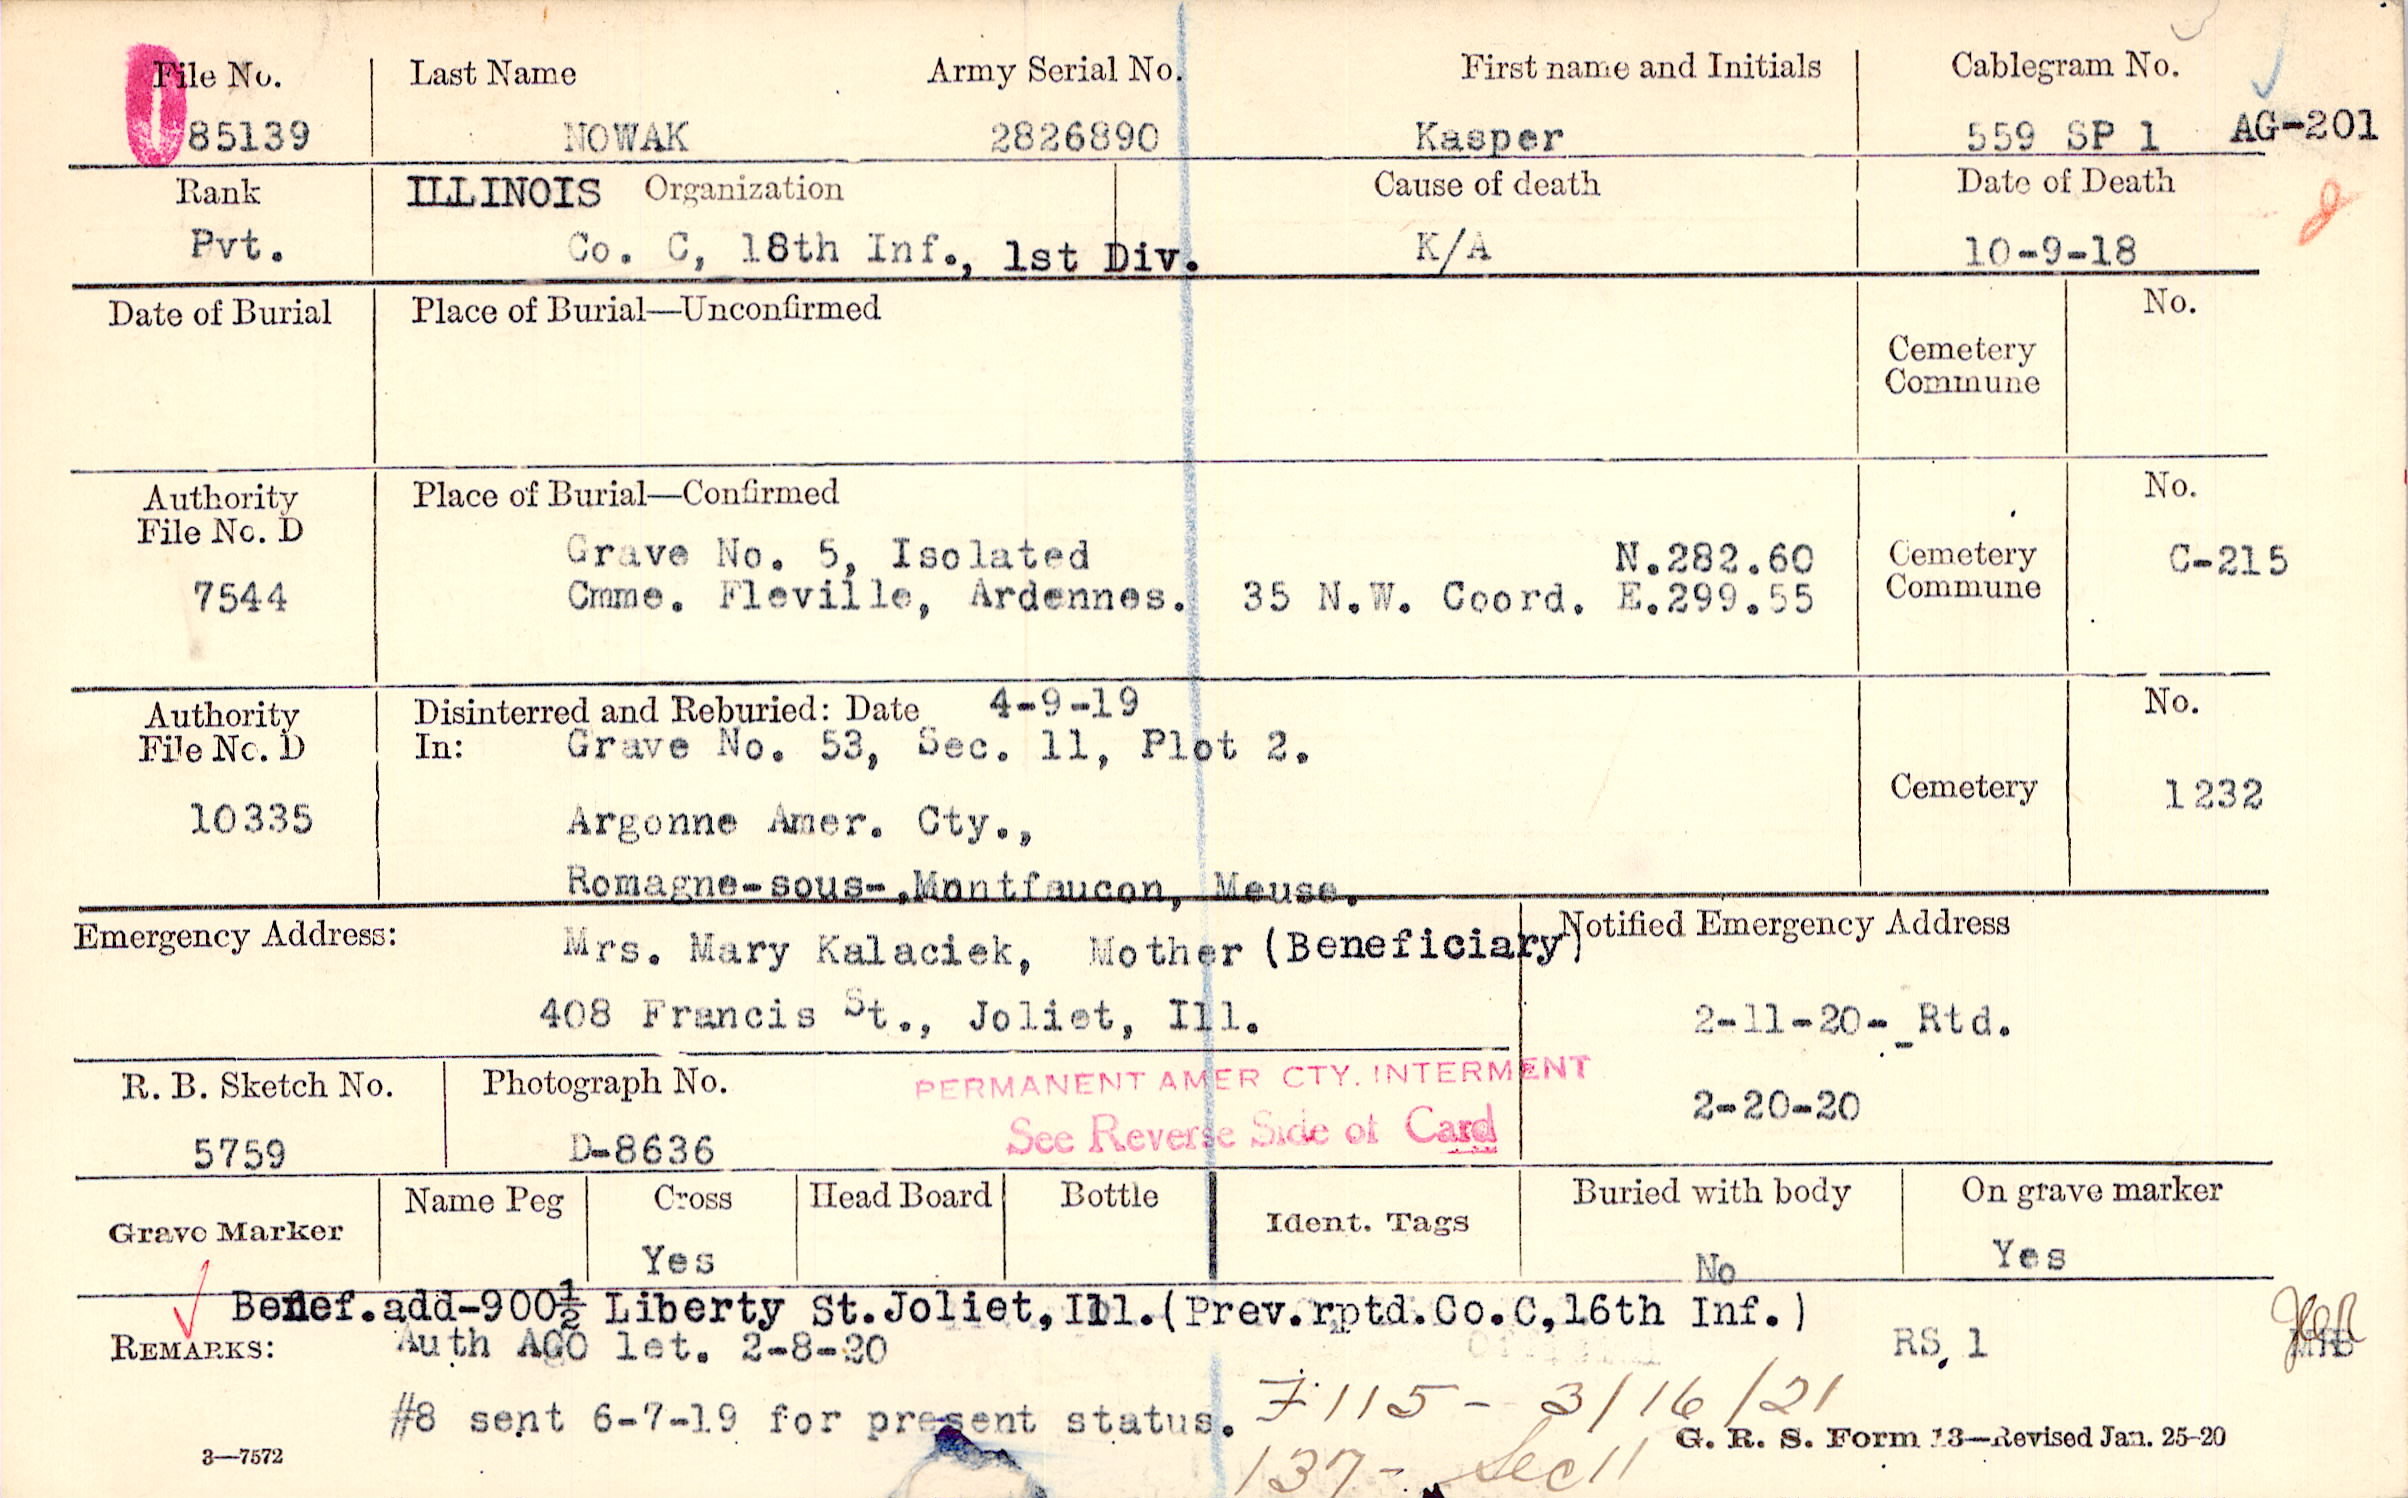 File No. Last Name Army Serial No. First name and Initials Cablegram No.
85139 NOWAK 2826890 Kasper 559 SP 1 AG-201
Rank ILLINOIS Organization Cause of death Date of Death
Pvt. Co. C, 18th Inf., 1st Div. K/A 10-9-18
Date of Burial Place of Burial—Unconfirmed No.
Cemetery
Commune
Authority Place of Burial—Confirmed No.
File No. D
Grave No. 5, Isolated N.282.60 Cemetery C-215
7544 Cmme. Fleville, Ardennes. 35 N.W. Coord. E.299.55 Commune
Authority Disinterred and Reburied: Date 4-9-19 No.
File No. D In: Grave No. 53, Sec. 11, Plot 2.
Cemetery 1232
10335 Argonne Amer. Cty.,
Romagne-sous-,Montfaucon, Meuse.
Emergency Address: Mrs. Mary Kalaciek, Mother (Beneficiary) Notified Emergency Address
408 Francis St., Joliet, Ill. 2-11-20- Rtd.
R. B. Sketch No. Photograph No. PERMANENT AMER CTY. INTERMENT
2-20-20
5759 D-8636 See Reverse Side of Card
Grave Marker Name Peg Cross Head Board Bottle Ident. Tags Buried with body On grave marker
Yes No Yes
Benef.add-900½ Liberty St.Joliet,Ill.(Prev.rptd.Co.C,16th Inf.)
REMARKS: Auth AGO let. 2-8-20 RS 1
#8 sent 6-7-19 for present status. F115 - 3/16/21
3—7572 G. R. S. Form 13—Revised Jan. 25-20
137- Sec 11